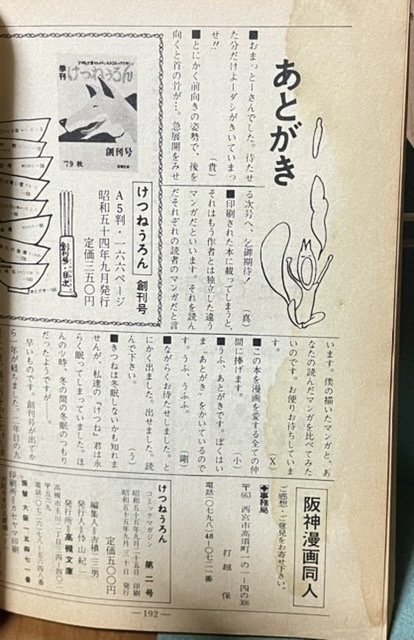 あとがき
■おまっとーさんでした。待たせ
た分だけよーダシがきいていまっ
せ!!　　(貴)
■とにかく前向きの姿勢で、後を
向くと首の骨が…。急展開をみせ
る次号へ、乞御期待！　(真)
■印刷された本に載ってしまうと、
それはもう作者とは独立した違う
マンガだといいます。それを読ん
だそれぞれの読者のマンガだと言
います。僕の描いたマンガと、あ
なたの読んだマンガを比べてみた
いのです。お便りお待ちしていま
す。　(X)
■この本を漫画を愛する全ての仲
間に捧げます。　(小)
■うふ、あとがきです。ぼくはい
ま“あとがき”をかいているので
す。うふ、うふふ。　(剛)
■ながらくお待たせしました。と
にかく出ました。出せました。読
んで下さい。　(う)
■きつねは冬眠しないかも知れま
せんが、私達の「けつね」君は永
らく眠ってしまっていました。ほ
んの少時、冬の間の冬眠のつもり
だったようですが―。
早いものです。創刊号が出てか
ら一年が経ちました。二年目の九
季刊
けつねうろん
創刊号
'79 秋
けつねうろん　創刊号
A5判・一六六ページ
昭和五十四年九月発行
定価三五〇円
創刊号・目次
阪神漫画同人
ご感想・ご意見をお寄せ下さい。
◆事務局
〒663　西宮市高須町一の一4の306
打越　保
電話〇七九八―48―〇七二一番
けつねうろん
コミックマガジン　第二号
昭和五十五年九月二十五日　印刷
昭和五十五年九月三十日　発行
定価五〇〇円
編集人＝吉積二三男
発行人＝
発行所＝高槻文庫
〒五六九
印刷所＝カセヤマ印刷
—192—